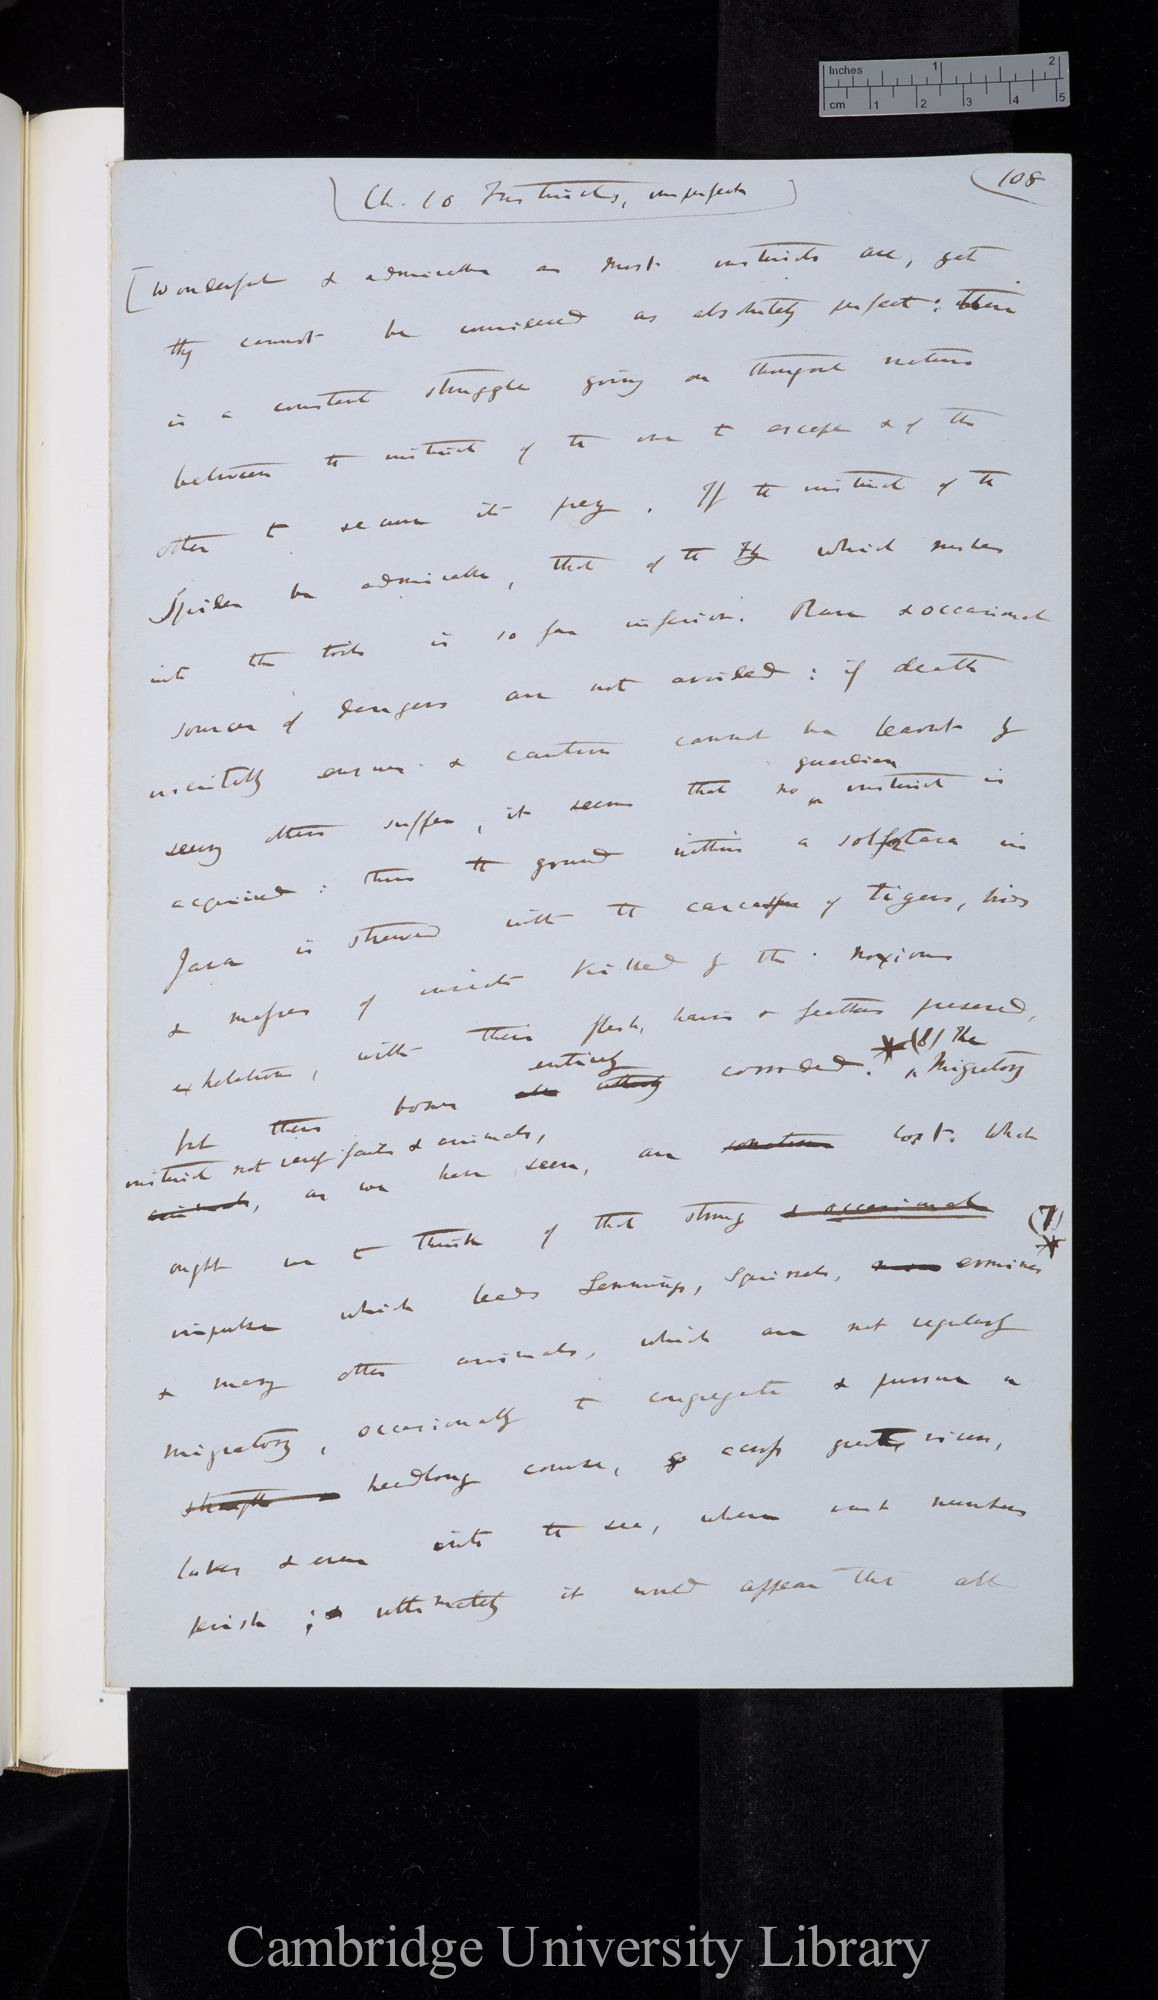 Inches 1 2
cm 1 2 3 4 5
108
Ch. 10 Instincts, imperfect
[Wonderful & admirable as most instincts are, yet
they cannot be considered as absolutely perfect: there
is a constant struggle going on throughout nature
between the instinct of the one to escape & of the
other to secure its prey. If the instinct of the
Spider be admirable, that of the Fly which rushes
into the toils is so far inferior. Rare & occasional
sources of danger are not avoided: if death
inevitably ensues & caution cannot be learnt by
guardian
seeing others suffer, it seems that no instinct is
acquired: thus the ground within a solfatara in
Java is strewed with the carcasses of tigers, birds
& masses of insects killed by the noxious
exhalations, with their flesh, hairs & feathers preserved,
entirely (8) The
but their bones all utterly corroded. Migratory
instinct not rarely fails & animals,
animals, as we have seen, are sometimes lost. What
ought we to think of that strong & occasional (7)
impulse which leads Lemmings, Squirrels, ermines
& many other animals, which are not regularly
migratory, occasionally to congregate & pursue a
straight headlong course, across great rivers,
lakes & even into the sea, where vast numbers
perish; & ultimately it would appear that all
Cambridge University Library